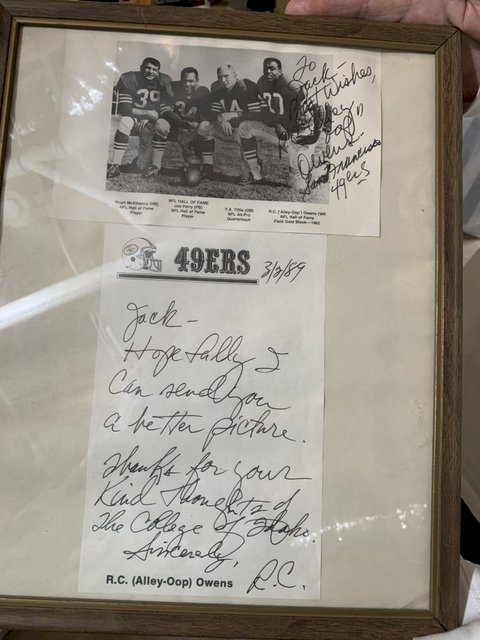 To
Jack-
Best Wishes,
"Alley
Oop"
Owens-
San Francisco
49ers
39
34
14
Hugh McElhenny (HB)
NFL Hall of Fame
Player
NFL HALL OF FAME
Joe Perry (FB)
NFL Hall of Fame
Player
Y.A. Tittle (QB)
NFL All-Pro
Quarterback
R.C. ('Alley-Oop') Owens (WR
NFL Hall of Fame
Field Goal Block—1962
49ERS
3/2/89
Jack-
Hopefully I
Can send you
a better picture.
Thanks for your
Kind Thoughts of
The College of Idaho.
Sincerely,
R.C. (Alley-Oop) Owens
R.C.